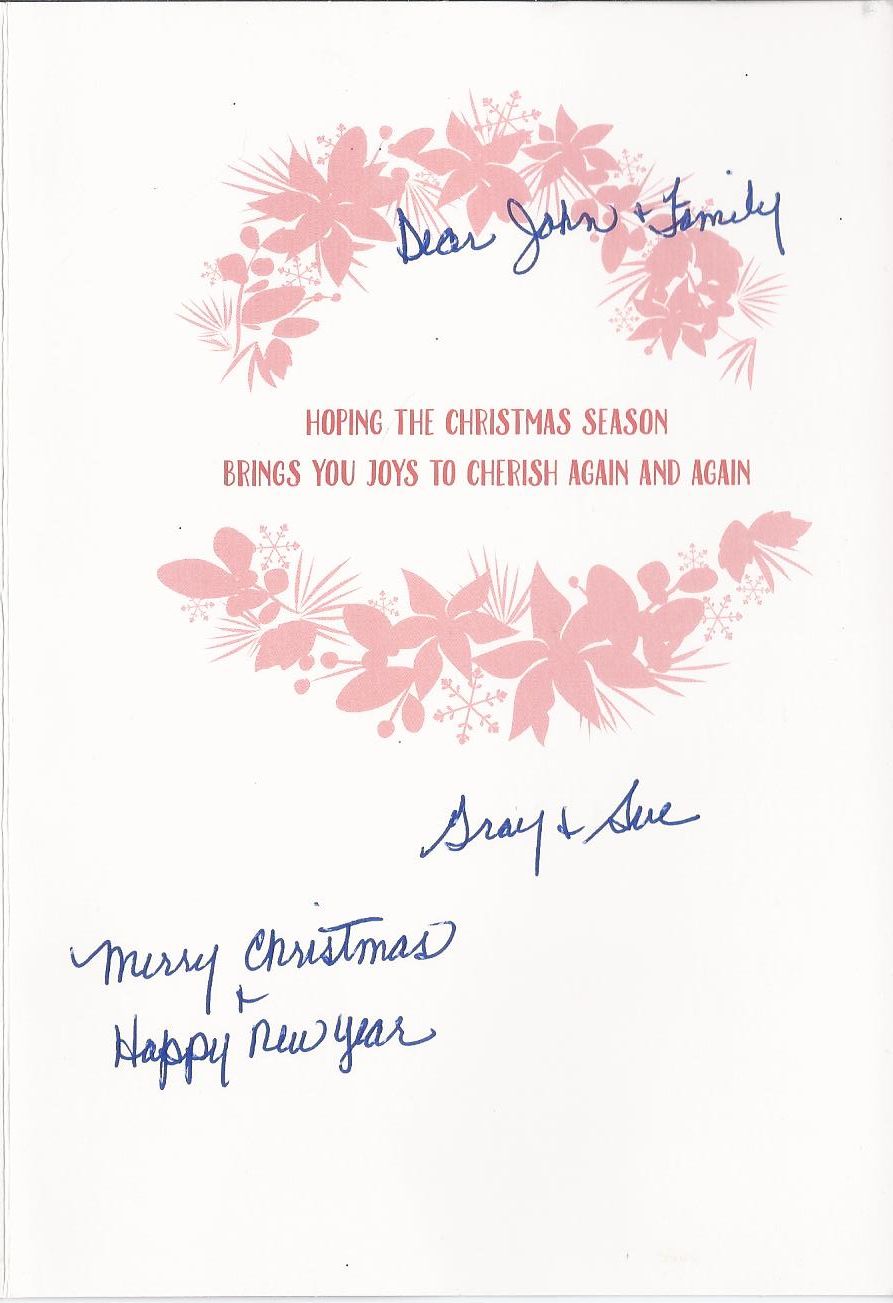 Dear John + Family
HOPING THE CHRISTMAS SEASON
BRINGS YOU JOYS TO CHERISH AGAIN AND AGAIN
Gray + Sue
Merry Christmas
+
Happy New Year